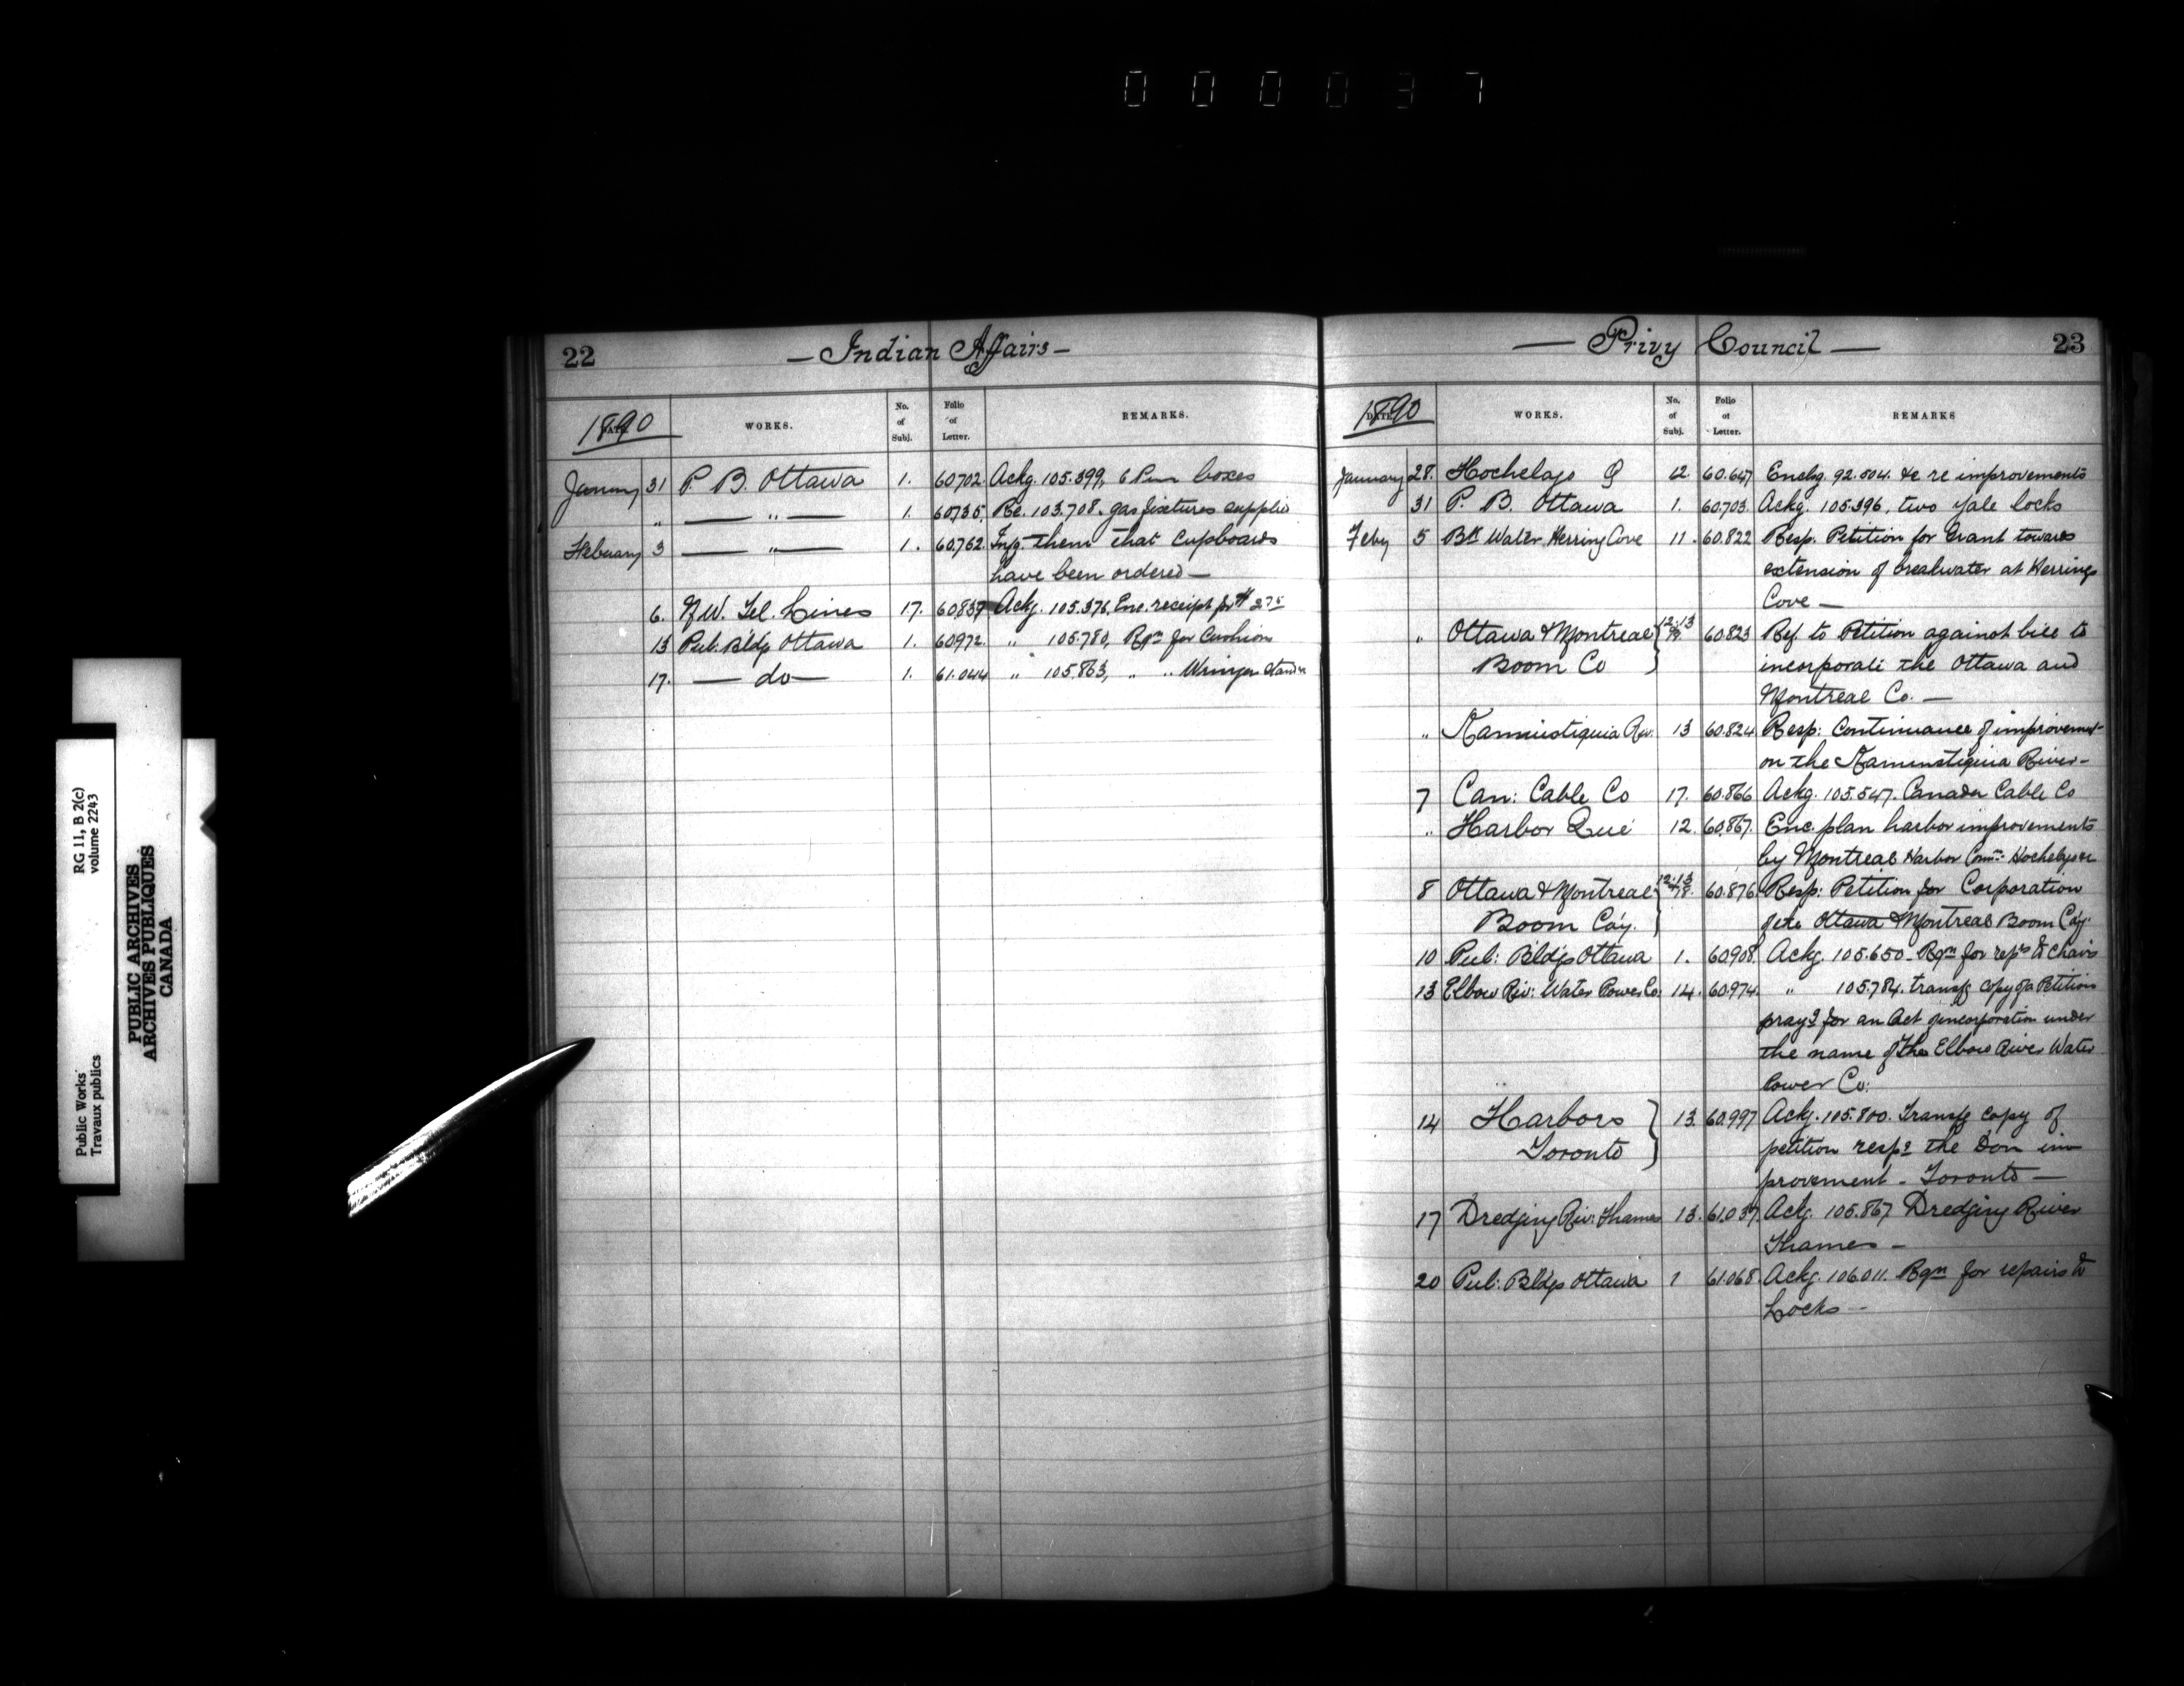 000037
RG 11, B 2(c)
volume 2243
Public Works
Travaux publics
PUBLIC ARCHIVES
ARCHIVES PUBLIQUES
CANADA
22 — Indian Affairs —
1890 DATE. WORKS. No. of Subj. Folio of Letter. REMARKS.
January 31 P. B. Ottawa 1. 60702. Ackg. 105.399, 6 boxes
" — " — 1. 60735. Re. 103.708. gas fixtures supplied
February 3 — " — 1. 60.762. Infg. them that Cupboards
have been ordered —
6. N.W. Tel. Lines 17. 60837 Ackg. 105.376, Enc. receipt for $ 2.75
13 Pub. Bldgs Ottawa 1. 60972. " 105.780, Rqn for Cushion
17. — do — 1. 61.044 " 105.863, " " Wringer
— Privy Council — 23
1890 DATE. WORKS. No. of Subj. Folio of Letter. REMARKS
January 28. Hochelaga Q 12. 60.647 Enclg. 92.504. &c re improvements
31 P. B. Ottawa 1. 60.703. Ackg. 105.396, two yale locks
Feby 5 Bk Water Herring Cove 11. 60.822 Resp. Petition for Grant towards
extension of breakwater at Herring
Cove —
" Ottawa & Montreal 12.13 60.823 Ref. to Petition against bill to
Boom Co incorporate the Ottawa and
Montreal Co. —
" Kaministiquia Riv. 13 60.824 Resp: Continuance of improvement
on the Kaministiquia River —
7 Can: Cable Co 17. 60.866 Ackg. 105.547. Canada Cable Co
" Harbor Que 12. 60.867. Enc. plan harbor improvements
by Montreal Harbor Comn. Hochelaga
8 Ottawa & Montreal 12.13 60.876 Resp: Petition for Corporation
Boom Coy. of the Ottawa & Montreal Boom Coy
10 Pub: Bldgs Ottawa 1. 60.908. Ackg. 105.650 — Rqn for reps to chairs
13 Elbow Riv: Water Power Co: 14. 60.974. " 105.784. transfg copy of a Petition
prayg for an Act of incorporation under
the name of the Elbow River Water
Power Co:
14 Harbors 13. 60.997 Ackg. 105.800. Transfg copy of
Toronto petition respg the Don im-
provement — Toronto —
17 Dredging Riv: Thames 13. 61.037. Ackg. 105.867 Dredging River
Thames —
20 Pub: Bldgs Ottawa 1 61.068. Ackg. 106.011. Rqn for repairs to
Locks —